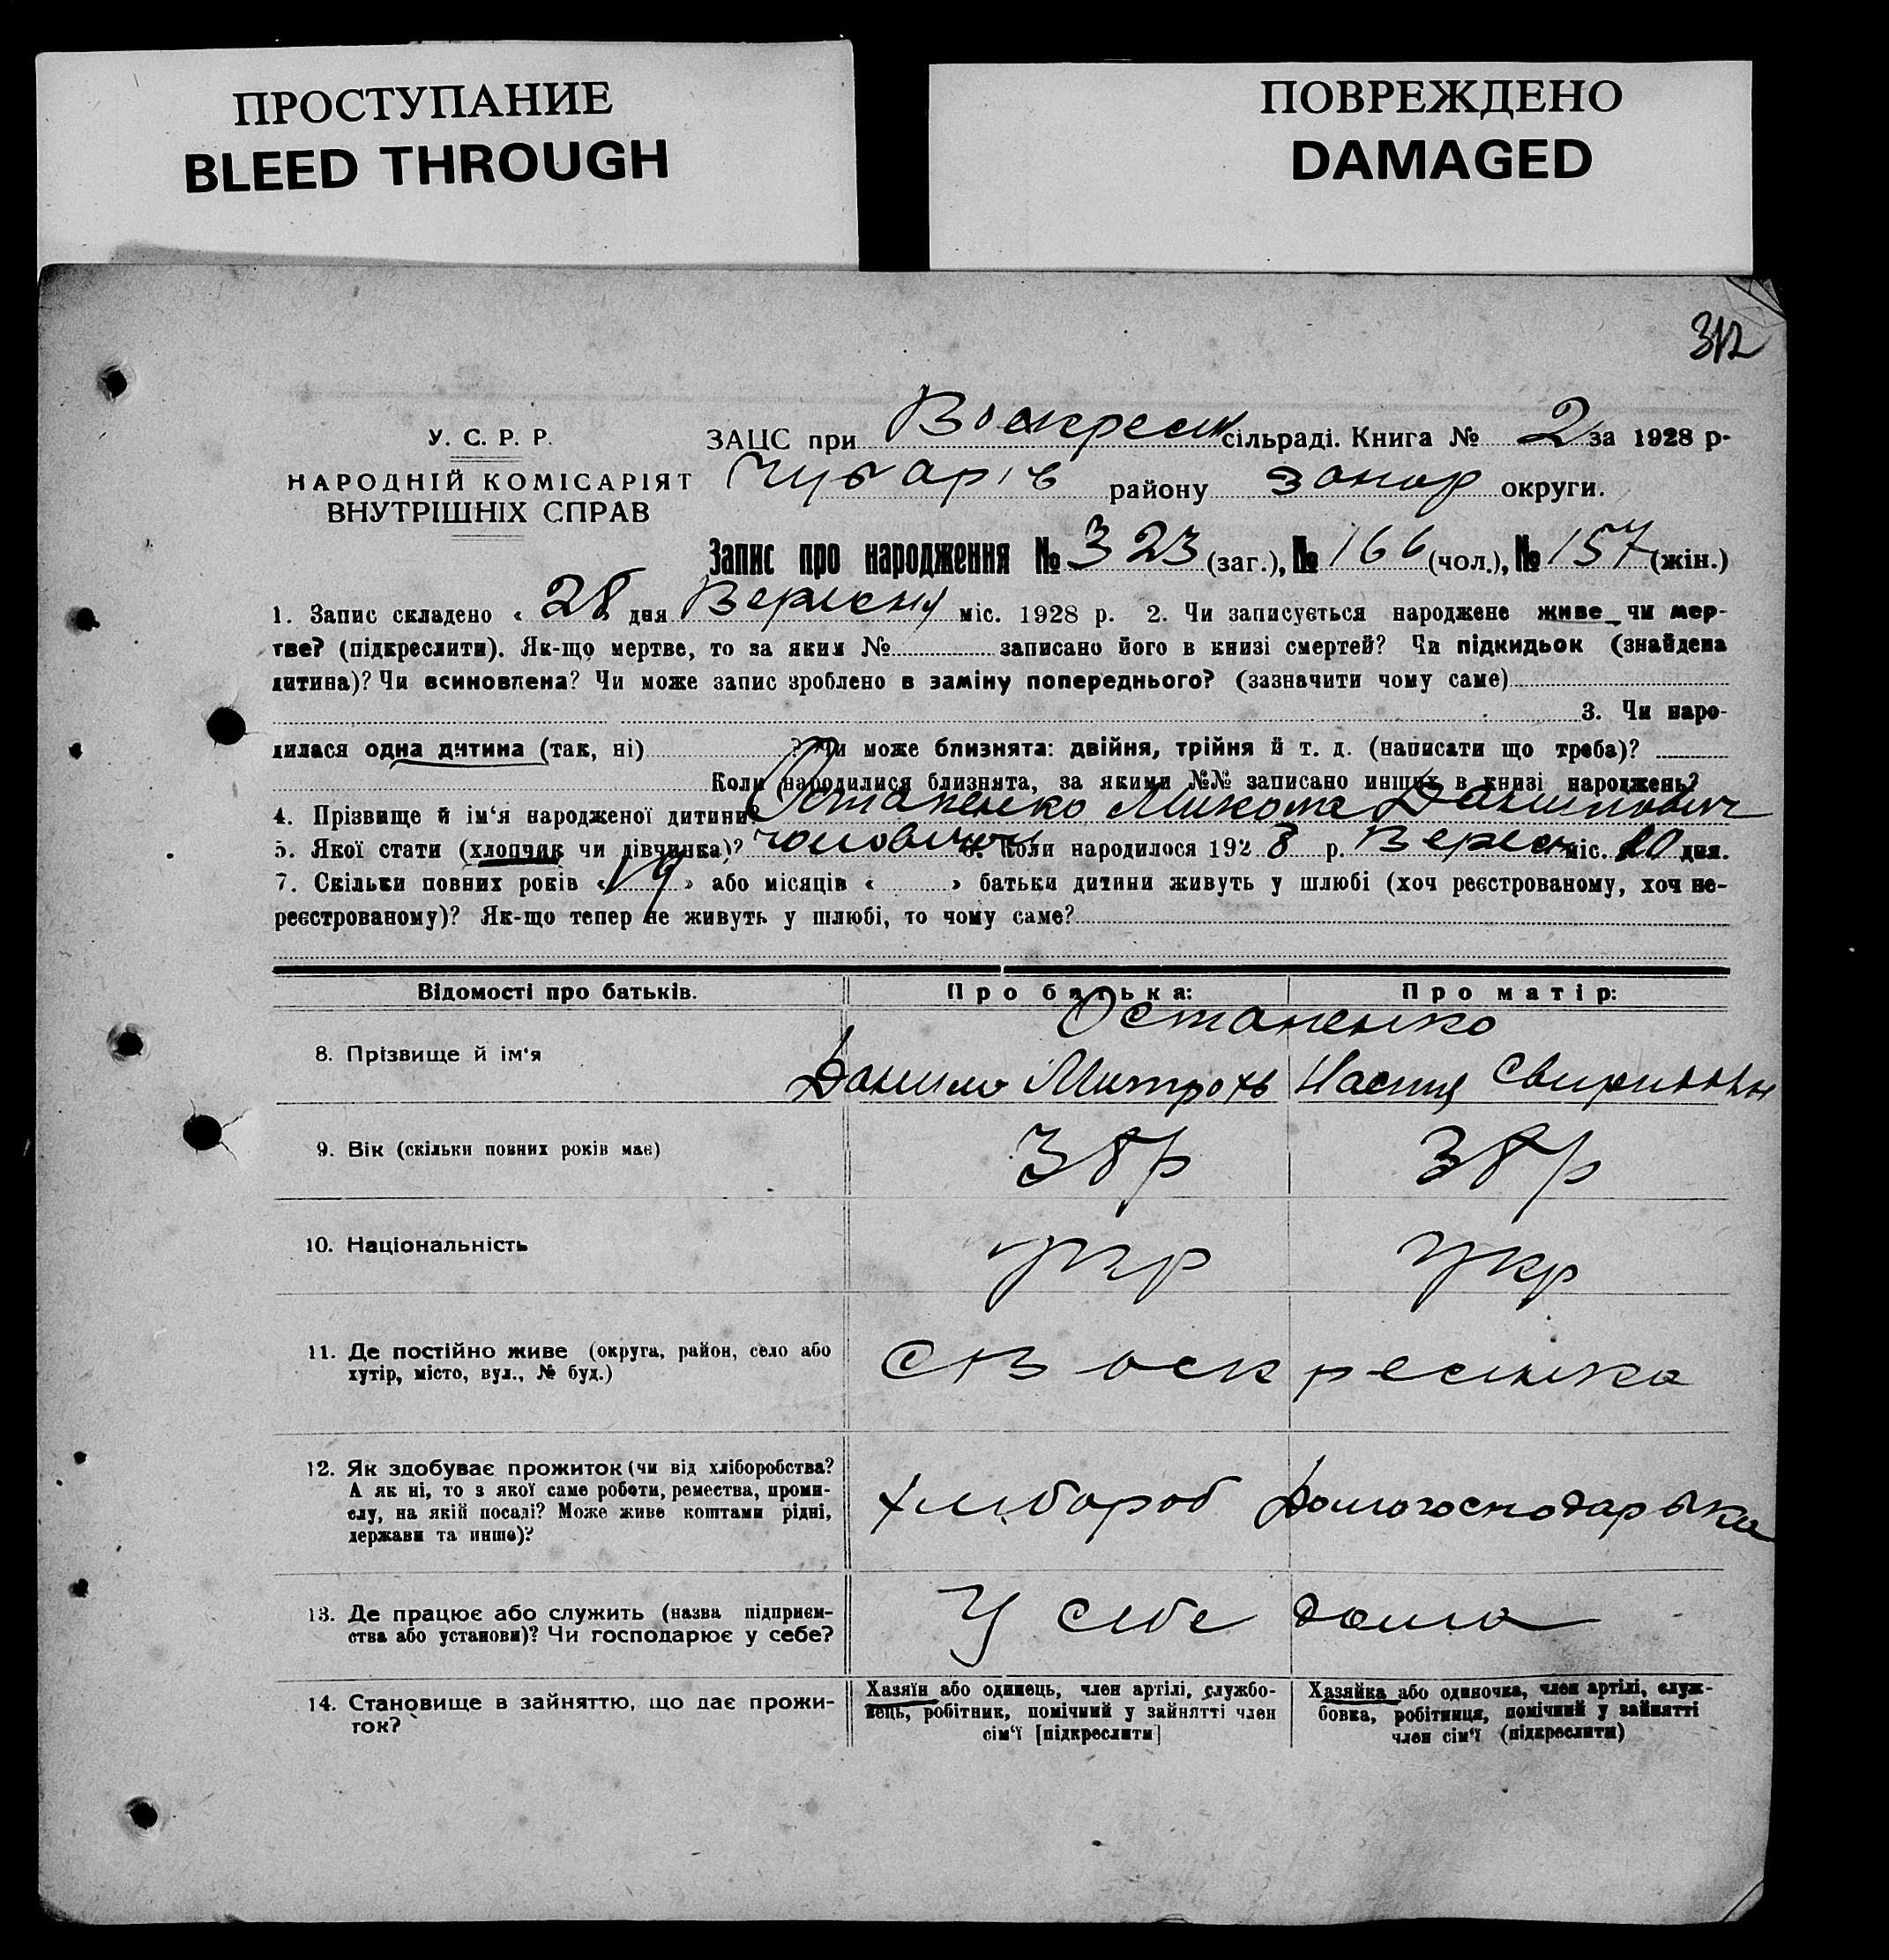 ПРОСТУПАНИЕ
BLEED THROUGH
ПОВРЕЖДЕНО
DAMAGED
312
У. С. Р. Р.
НАРОДНІЙ КОМІСАРІЯТ
ВНУТРІШНІХ СПРАВ
ЗАЦС при Воскресен сільраді. Книга № 2 за 1928 р.
Чубарів району Запор округи.
Запис про народження № 323 (заг.), № 166 (чол.), № 157 (жін.)
1. Запис складено « 28 дня Вересня міс. 1928 р. 2. Чи записується народжене живе чи мер-
тве? (підкреслити). Як-що мертве, то за яким № записано його в книзі смертей? Чи підкидьок (знайдена
дитина)? Чи всиновлена? Чи може запис зроблено в заміну попереднього? (зазначити чому саме)
3. Чи наро-
дилася одна дитина (так, ні) ? Чи може близнята: двійня, трійня й т. д. (написати що треба)?
Коли народилися близнята, за якими №№ записано инших в книзі народжень?
4. Прізвище й ім'я народженої дитини? Остапенко Микола Данилович
5. Якої стати (хлопчик чи дівчинка)? чоловічої 6. Коли народилося 1928 р. Вересн міс. 20 дня.
7. Скільки повних років «19» або місяців « » батьки дитини живуть у шлюбі (хоч реєстрованому, хоч не-
реєстрованому)? Як-що тепер не живуть у шлюбі, то чому саме?
Відомості про батьків. Про батька: Про матір:
Остапенко
8. Прізвище й ім'я Данило Митроф Настя
9. Вік (скільки повних років має) 38 р 38 р
10. Національність укр укр
11. Де постійно живе (округа, район, село або
хутір, місто, вул., № буд.) с Воскресінка
12. Як здобуває прожиток (чи від хліборобства?
А як ні, то з якої саме роботи, ремества, проми-
слу, на якій посаді? Може живе коштами рідні,
держави та инше)? Хлібороб Домогосподарька
13. Де працює або служить (назва підприєм-
ства або установи)? Чи господарює у себе? У себе дома
14. Становище в зайняттю, що дає прожи-
ток?
Хазяїн або одинець, член артілі, службо-
вець, робітник, помічний у зайнятті член
сім'ї [підкреслити]
Хазяйка або одиночка, член артілі, служ-
бовка, робітниця, помічний у зайнятті
член сім'ї (підкреслити)